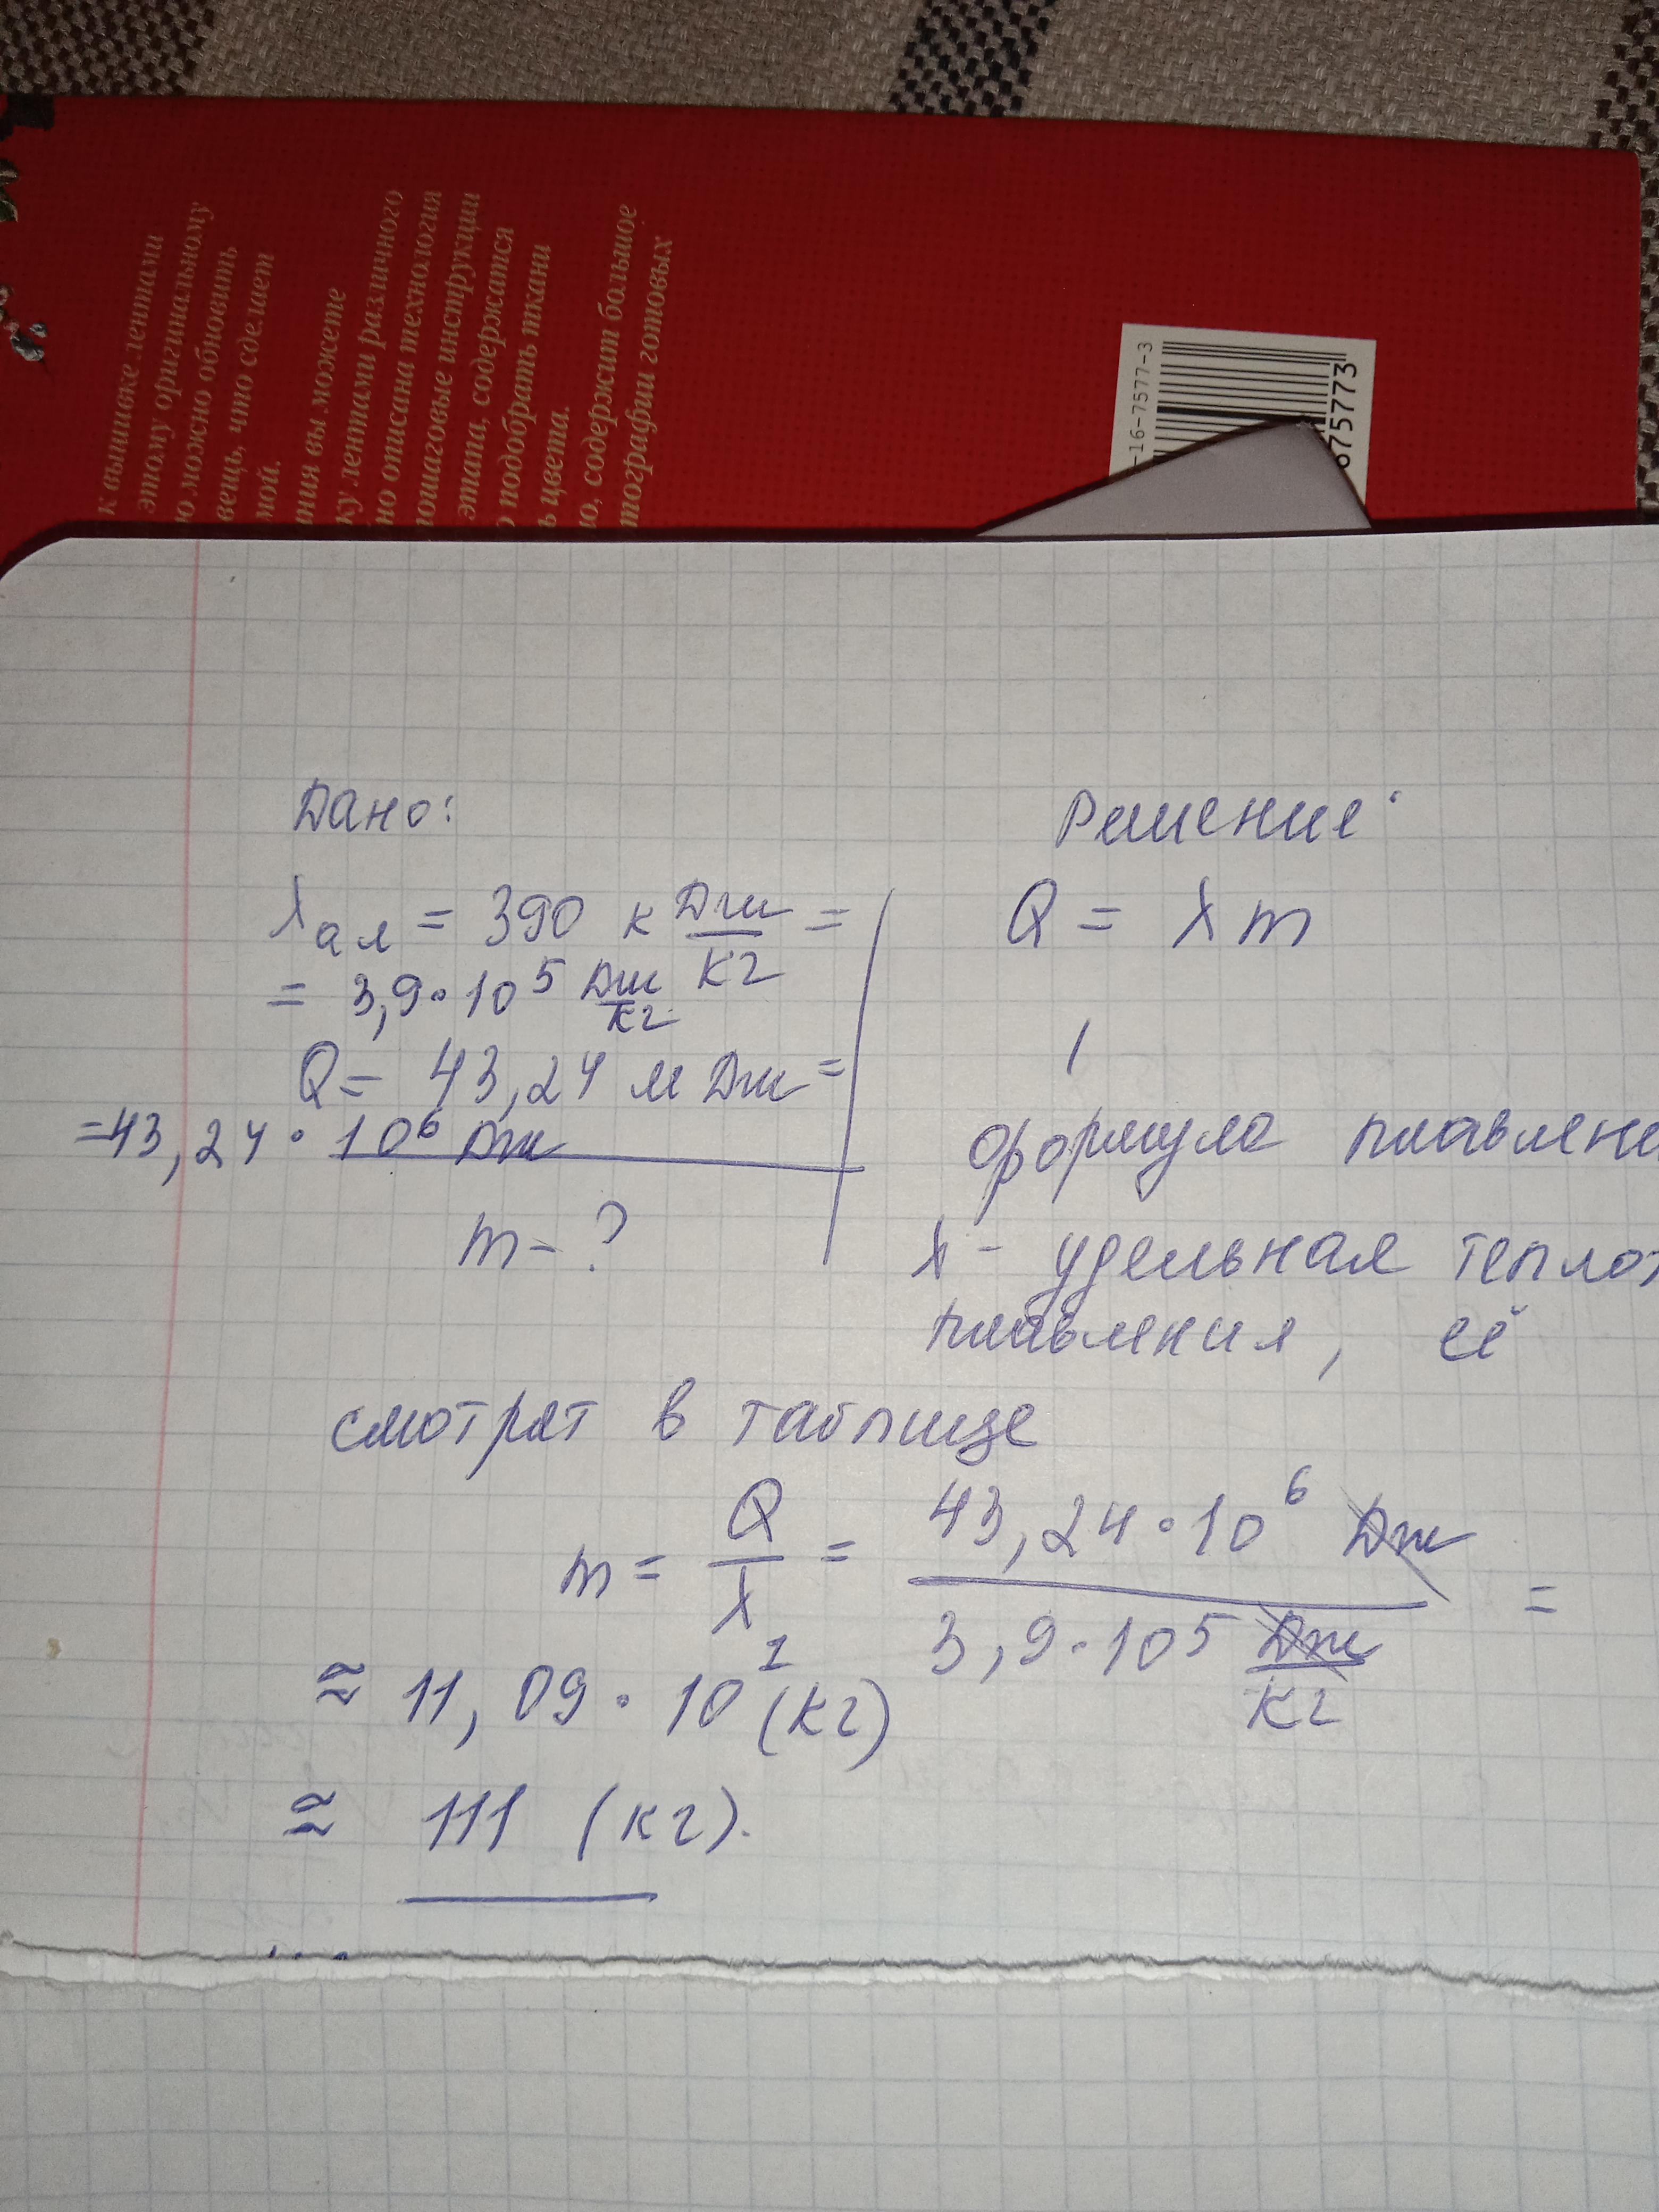 к вышивке лентами
этому оригинальному
ю можно обновить
вещь, что сделает
мой.
ния вы можете
ку лентами различного
но описана технология
ошаговые инструкции
этапа, содержатся
подобрать ткани
ь цвета.
ю, содержит большое
тографии готовых
-16-7577-3
875773
Дано:
λал = 390 к Дж/кг =
= 3,9·10⁵ Дж/кг
Q = 43,24 мДж =
=43,24·10⁶ Дж
m - ?
Решение:
Q = λm
формула плавлени
λ - удельная теплот
плавления, её
смотрят в таблице
m = Q/λ = 43,24·10⁶ Дж / 3,9·10⁵ Дж/кг =
≈ 11,09·10¹ (кг)
≈ 111 (кг).